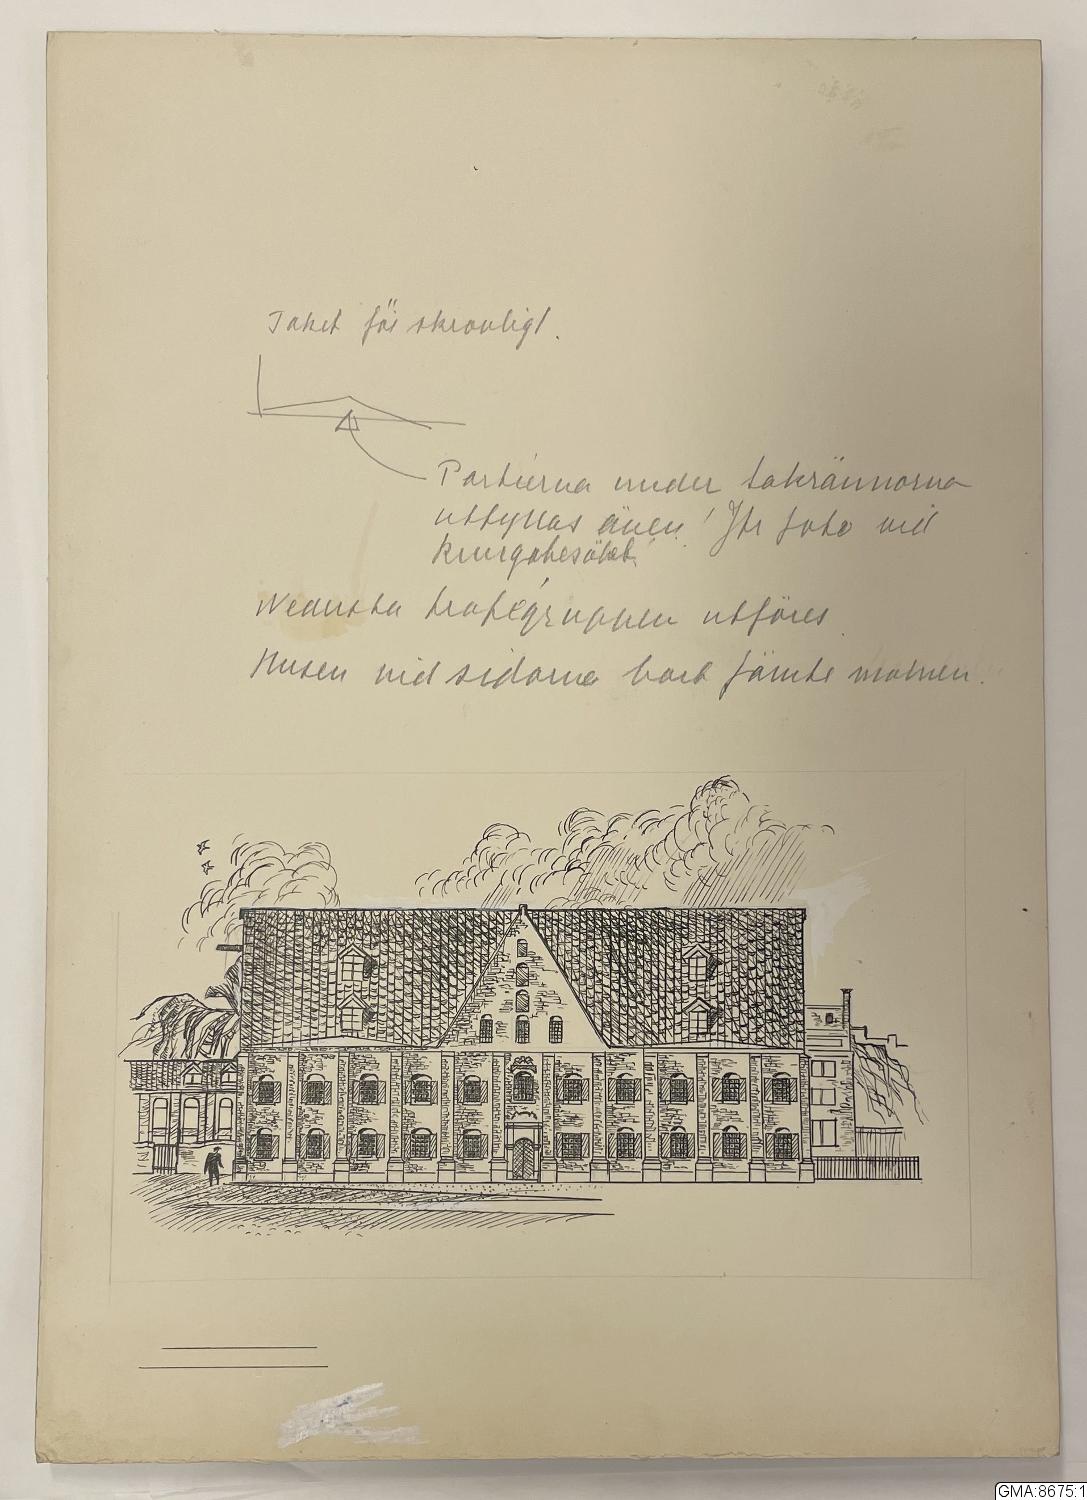 Taket för skrovligt.
Partierna under takrännorna
utfyllas även! Jfr foto vid
kungabesöket!
Nedersta trapegruppen utföres.
Husen vid sidorna bort jämte molnen.
GMA:8675:1